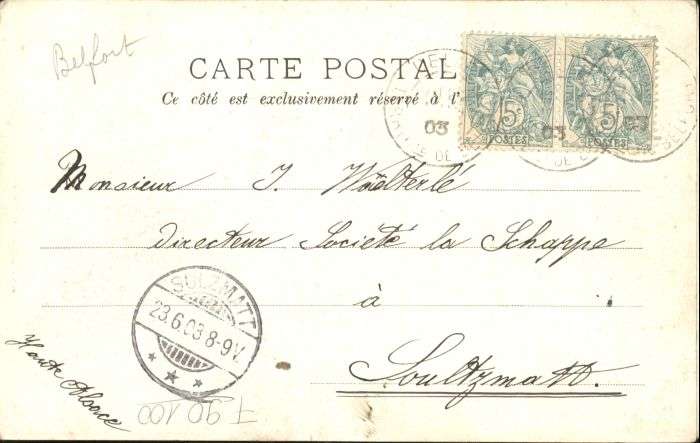 Belfort
CARTE POSTAL
Ce côté est exclusivement réservé à l'
5
POSTES
5
POSTES
03
03
03
DE
DE
Monsieur J. Woelterlé
Directeur Société la Schappe
à
Soultzmatt.
Haute Alsace
SULZMATT
23.6.03 8-9V
7 90 100